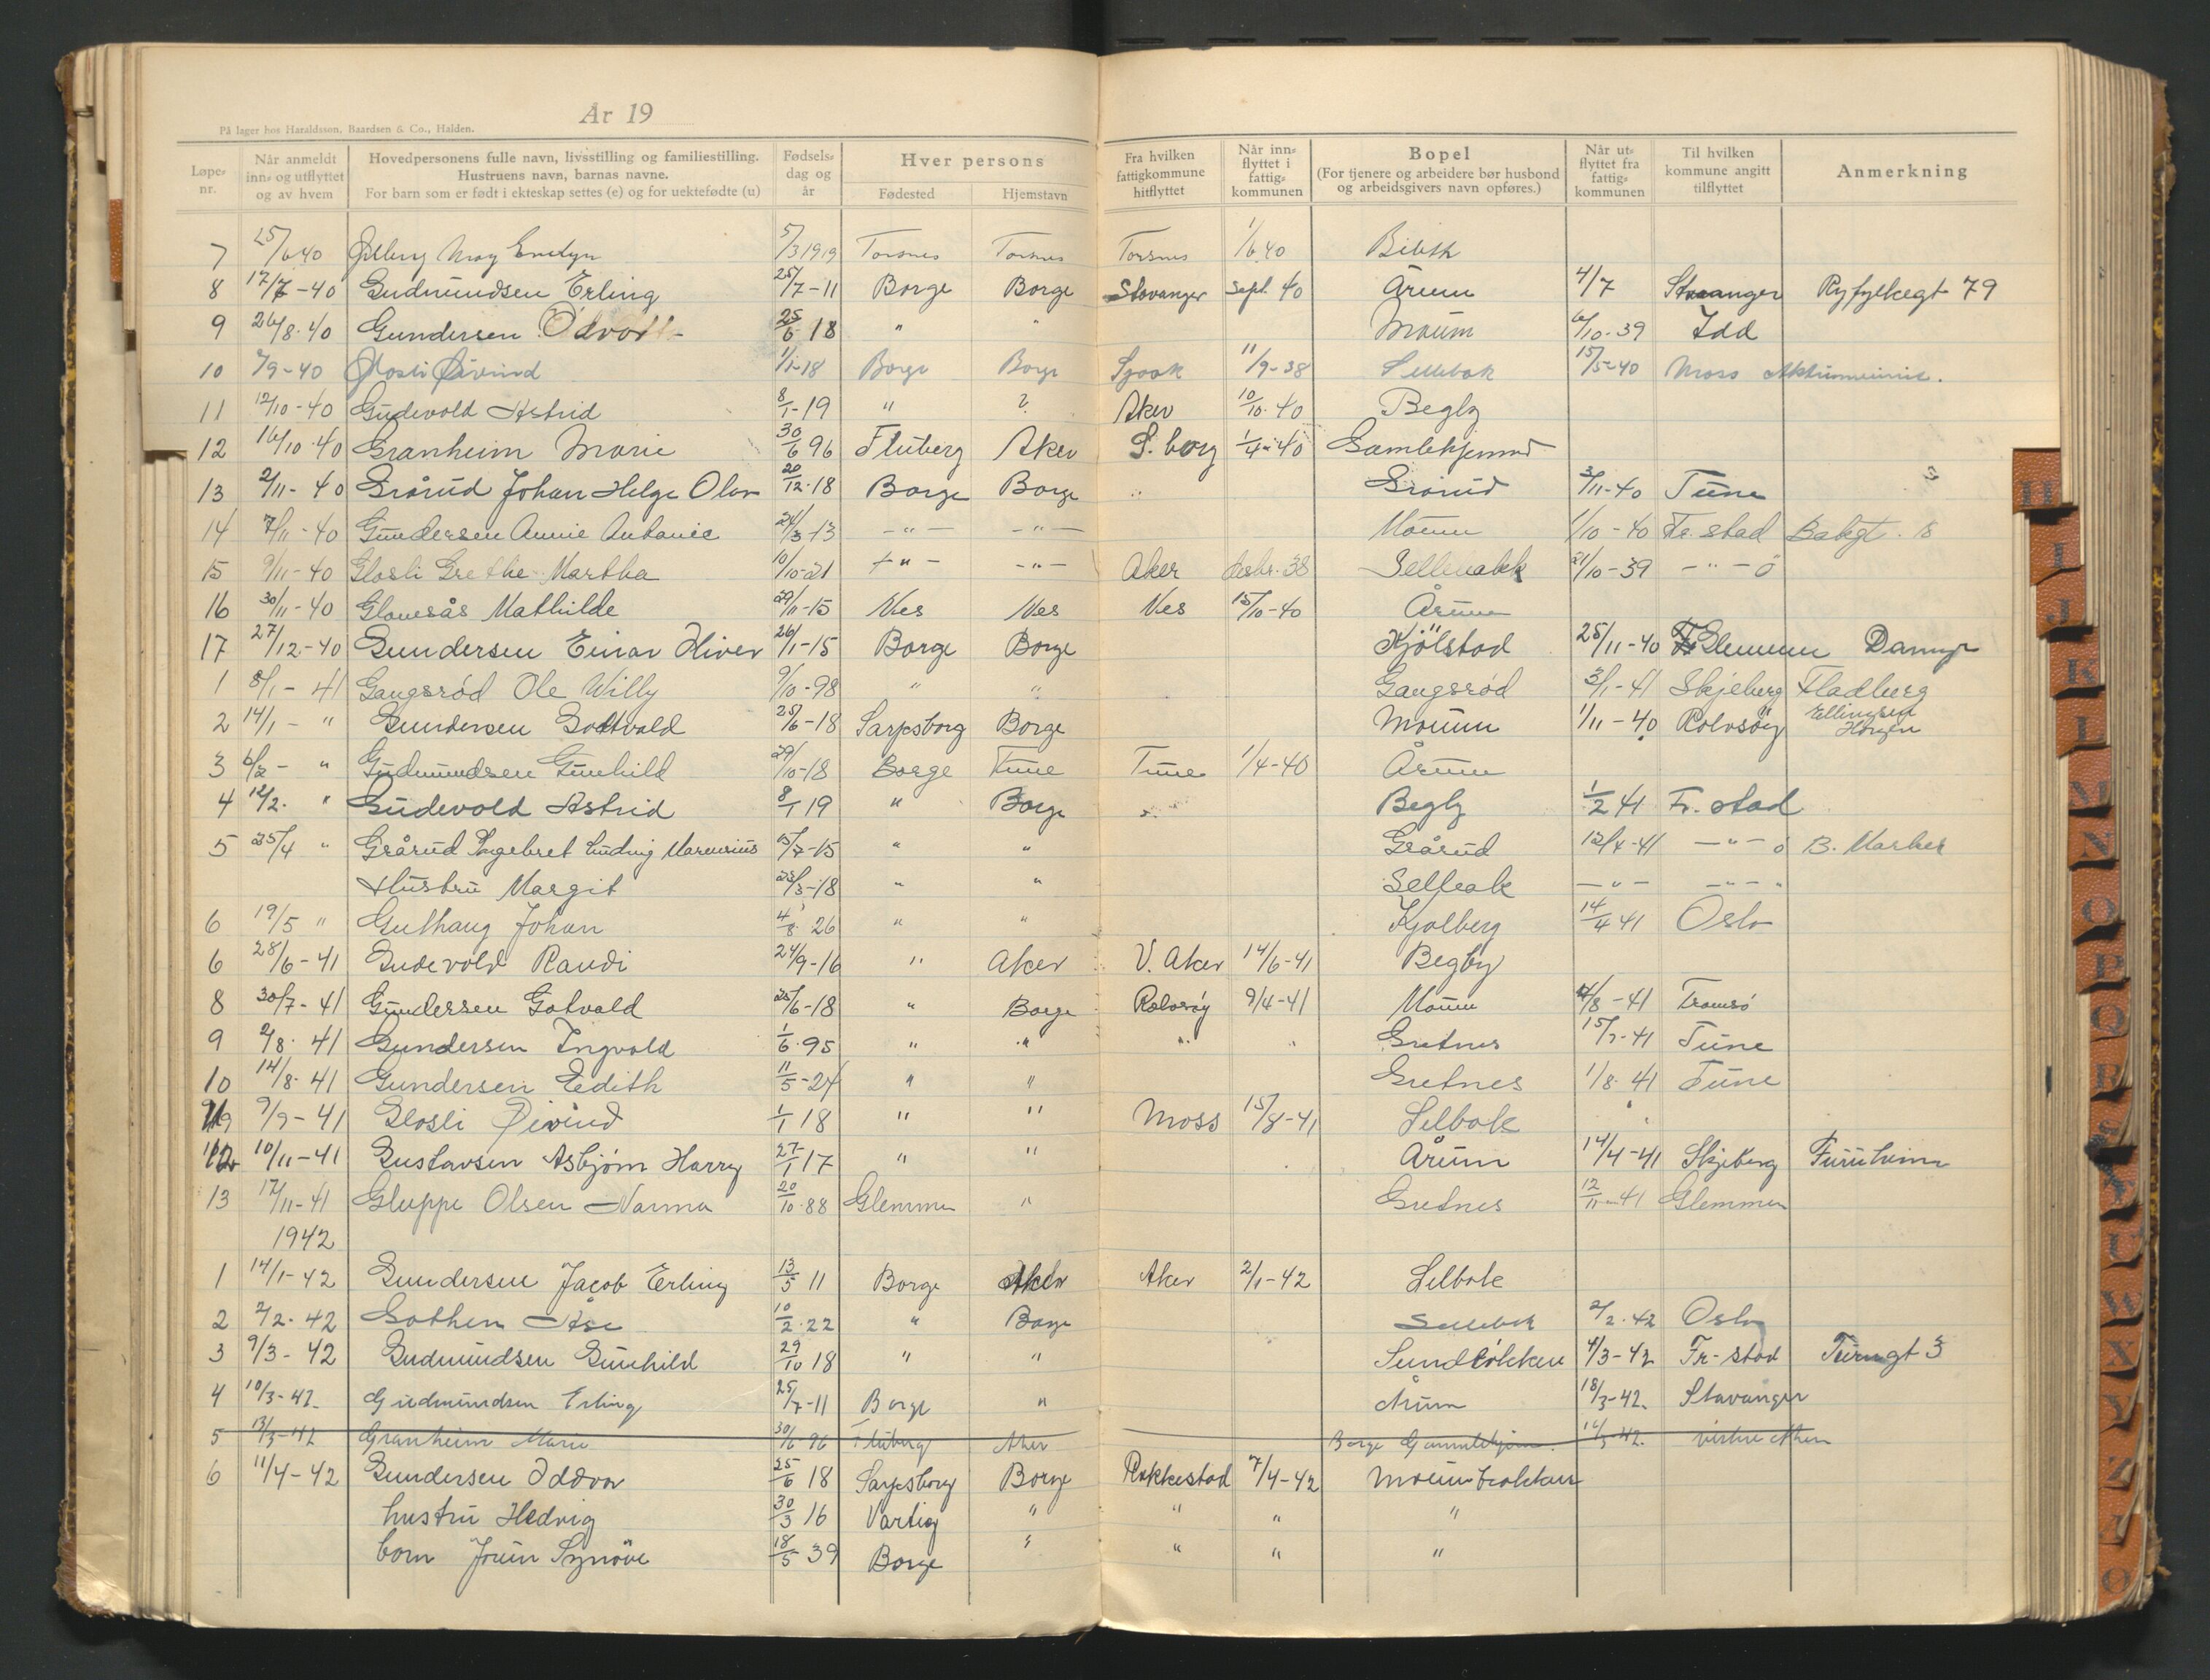 År 19
På lager hos Haraldsson, Baardsen & Co., Halden.
Løpe-nr. | Når anmeldt inn- og utflyttet og av hvem | Hovedpersonens fulle navn, livsstilling og familiestilling. Hustruens navn, barnas navne. For barn som er født i ekteskap settes (e) og for uektefødte (u) | Fødsels-dag og år | Hver persons Fødested | Hjemstavn | Fra hvilken fattigkommune hitflyttet | Når inn-flyttet i fattig-kommunen | Bopel (For tjenere og arbeidere bør husbond og arbeidsgivers navn opføres.) | Når ut-flyttet fra fattig-kommunen | Til hvilken kommune angitt tilflyttet | Anmerkning
7 25/6 40 May Evelyn 5/3 1919 Torsnes Torsnes Torsnes 1/6 40
8 17/7-40 Gudmundsen Erling 25/7-11 Borge Borge Stavanger Sept. 40 Årum 4/7 Stavanger Ryfylkegt 79
9 26/8-40 Gundersen 25/6 18 " " Moum 6/10-39 Idd
10 7/9-40 Glosli Øivind 1/1-18 Borge Borge 11/9-38 Sellebak 15/5-40 Moss
11 12/10-40 Gudevold Astrid 8/1-19 " ? Aker 10/10-40 Begby
12 16/10 40 Granheim Marie 30/6 96 Fluberg Aker S.borg 1/4-40
13 2/11-40 Grårud Johan Helge Olav 20/12-18 Borge Borge " Grårud 3/11-40 Tune
14 7/11-40 Gundersen Annie Antonie 24/3-13 -"- -"- Moum 1/10-40 Fr.stad
15 9/11-40 Glosli Grethe Martha 10/10-21 -"- -"- Aker 38 Sellebakk 21/10-39 -"-
16 30/11-40 Glomsås Mathilde 29/11-15 Nes Nes Nes 15/10-40 Årum
17 27/12-40 Gundersen Einar Hiver 26/1-15 Borge Borge Kjölstad 25/11-40 Glemmen
1 8/1-41 Gangsrød Ole Willy 9/10-98 " " Gangsrød 3/1-41 Skjeberg Fladberg
2 14/1-" Gundersen Gottvald 25/6-18 Sarpsborg Borge Moum 1/11-40 Rolvsöy Ellingsen
3 6/2-" Gudmundsen Gunhild 29/10-18 Borge Tune Tune 1/4-40 Årum
4 12/2. " Gudevold Astrid 8/1 19 " Borge Begby 1/2 41 Fr. stad
5 25/4 " Grårud Ingebret Ludvig Marensius 15/7-15 " " Grårud 12/4-41 -"- B. Marker
Hustru Margit 23/3-18 " " Selleak -"- -"-
6 19/5 " Guthaug Johan 4/8 26 " " Kjølberg 14/4 41 Oslo
6 28/6-41 Gudevold Randi 24/9-16 " Aker V. Aker 14/6-41 Begby
8 30/7-41 Gundersen Gotvald 25/6-18 " Borge Rolvsöy 9/4-41 Moum 4/8-41 Tromsö
9 2/8. 41 Gundersen Ingvald 1/6. 95 " " " " Gretnes 15/7-41 Tune
10 14/8. 41 Gundersen Edith 11/5-24 " " Gretnes 1/8. 41 Tune
9/9-41 Glosli Øivind 1/1 18 " " Moss 15/8-41 Selbak
12 10/11-41 Gustavsen Asbjørn Harry 27/1 17 " " Årum 14/4-41 Skjeberg Furuheim
13 17/11-41 Gluppe Olsen Norma 20/10. 88 Glemmen " Gretnes 12/11-41 Glemmen
1942
1 14/1-42 Gundersen Jacob Erling 13/5 11 Borge Aker Aker 2/1-42 Selbak
2 2/2. 42 Gothen Åse 10/2. 22 " Borge Sellebak 2/2. 42 Oslo
3 9/3-42 Gudmundsen Gunhild 29/10 18 " " Sundløkken 4/3-42 Fr-stad Turngt 3
4 10/3-42 Gudmundsen Erling 25/7-11 Borge " Årum 18/3-42. Stavanger
5 13/3-42 Granheim Marie 30/6-96 Fluberg Aker Borge
6 11/4-42 Gundersen Oddvar 25/6 18 Sarpsborg Borge Rakkestad 7/4-42
hustru Hedvig 30/3 16 Varteig " " " "
barn Jorun Synöve 18/5 39 Borge " " " "